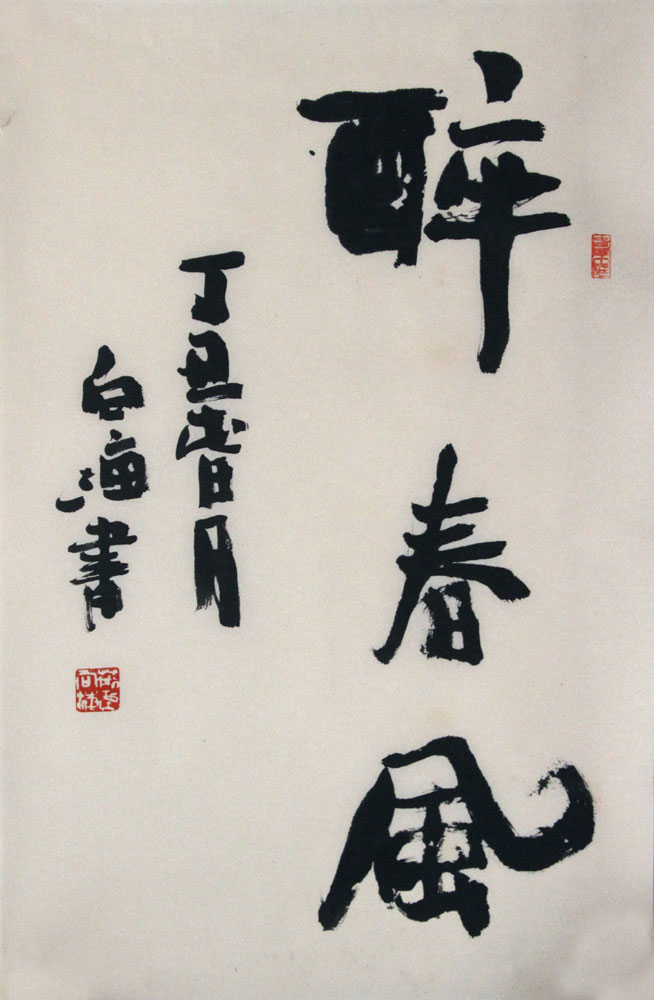 醉春風
丁丑旾月
白海書